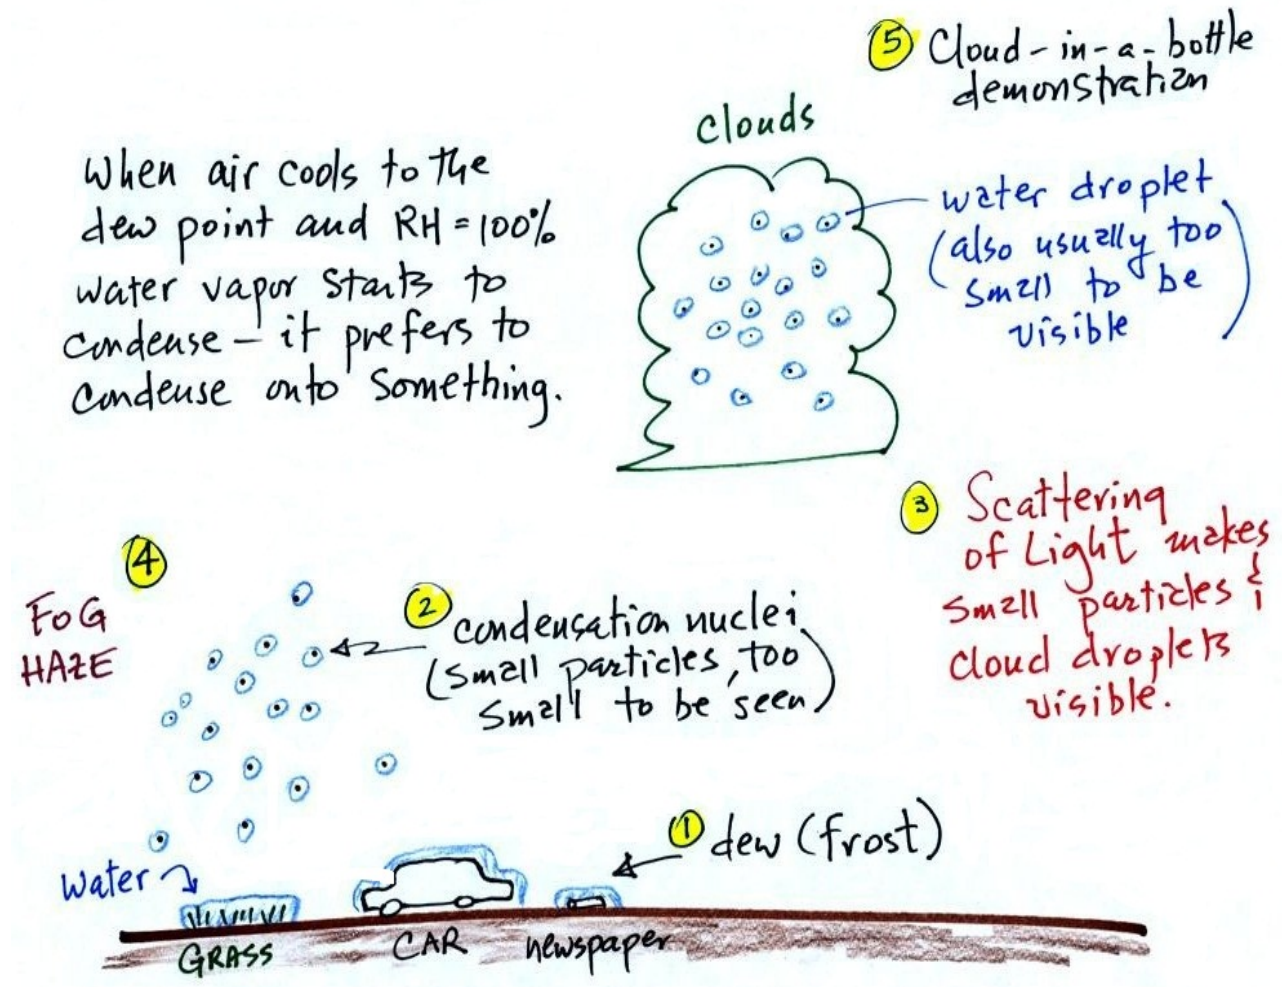 ⑤ Cloud-in-a-bottle
demonstration
Clouds
When air cools to the
dew point and RH = 100%
water vapor starts to
condense - it prefers to
condense onto something.
water droplet
(also usually too
small to be
visible)
③ Scattering
of Light makes
small particles &
cloud droplets
visible.
④
FOG
HAZE
② condensation nuclei
(small particles, too
small to be seen)
① dew (frost)
water
GRASS
CAR
newspaper